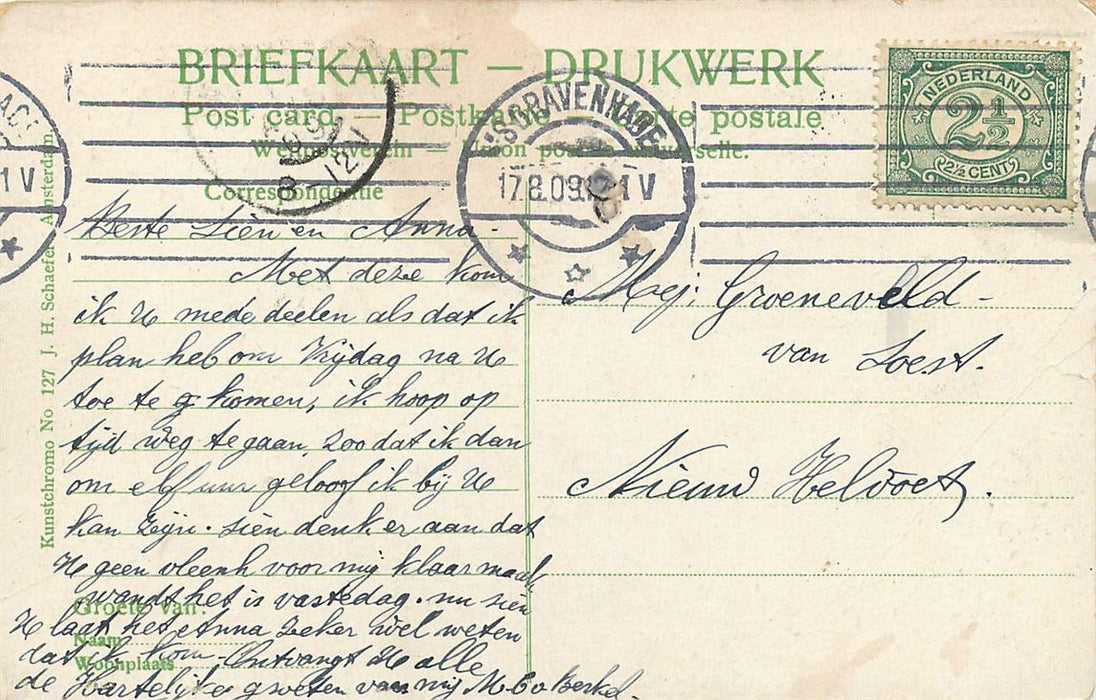 BRIEFKAART — DRUKWERK
Post card — Postkarte — Carte postale
Correspondentie
NEDERLAND
2½
2½ CENT
'SGRAVENHAGE
17.8.09.12-1 V
1 V
8
12V
Kunstchromo No 127 J. H. Schaefer Amsterdam
Beste Sien en Anna-
Met deze kom
ik U mede deelen als dat ik
plan heb om Vrijdag na U
toe te komen, ik hoop op
tijd weg te gaan, zoo dat ik dan
om elf uur geloof ik bij U
kan zijn. Sien denk er aan dat
U geen vleesh voor mij klaar maak
wandt het is vastedag. nu sien
Groete van:
U laat het Anna zeker wel weten
Naam
dat ik kom. Ontvangt U alle
Woonplaats
de Hartelijke groeten van mij M. C. v Berkel.
Mej: Groeneveld-
van Soest.
Nieuw Helvoet.